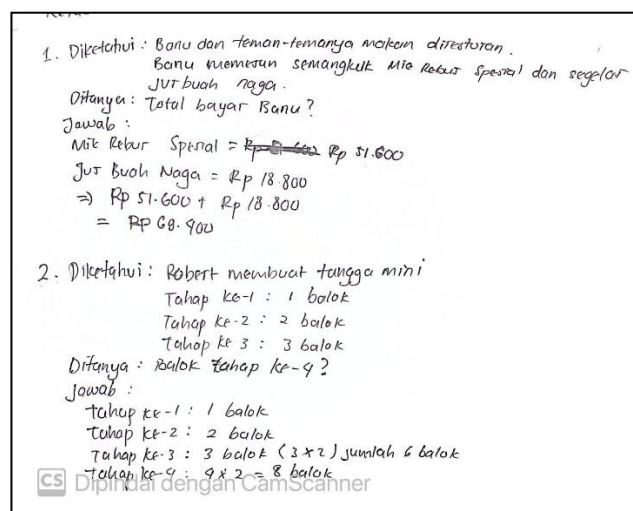 1. Diketahui : Banu dan teman-temanya makan direstoran.
Banu memesan semangkuk Mie Rebus Spesial dan segelas
Jus buah naga.
Ditanya : Total bayar Banu?
Jawab :
Mie Rebus Spesial = Rp 51.600
Jus Buah Naga = Rp 18.800
⇒ Rp 51.600 + Rp 18.800
= Rp 69.400
2. Diketahui : Robert membuat tangga mini
Tahap ke-1 : 1 balok
Tahap ke-2 : 2 balok
Tahap ke 3 : 3 balok
Ditanya : Balok tahap ke-4?
Jawab :
tahap ke-1 : 1 balok
tahap ke-2 : 2 balok
Tahap ke-3 : 3 balok (3x2) jumlah 6 balok
tahap ke-4 : 4 x 2 = 8 balok
CS Dipindai dengan CamScanner